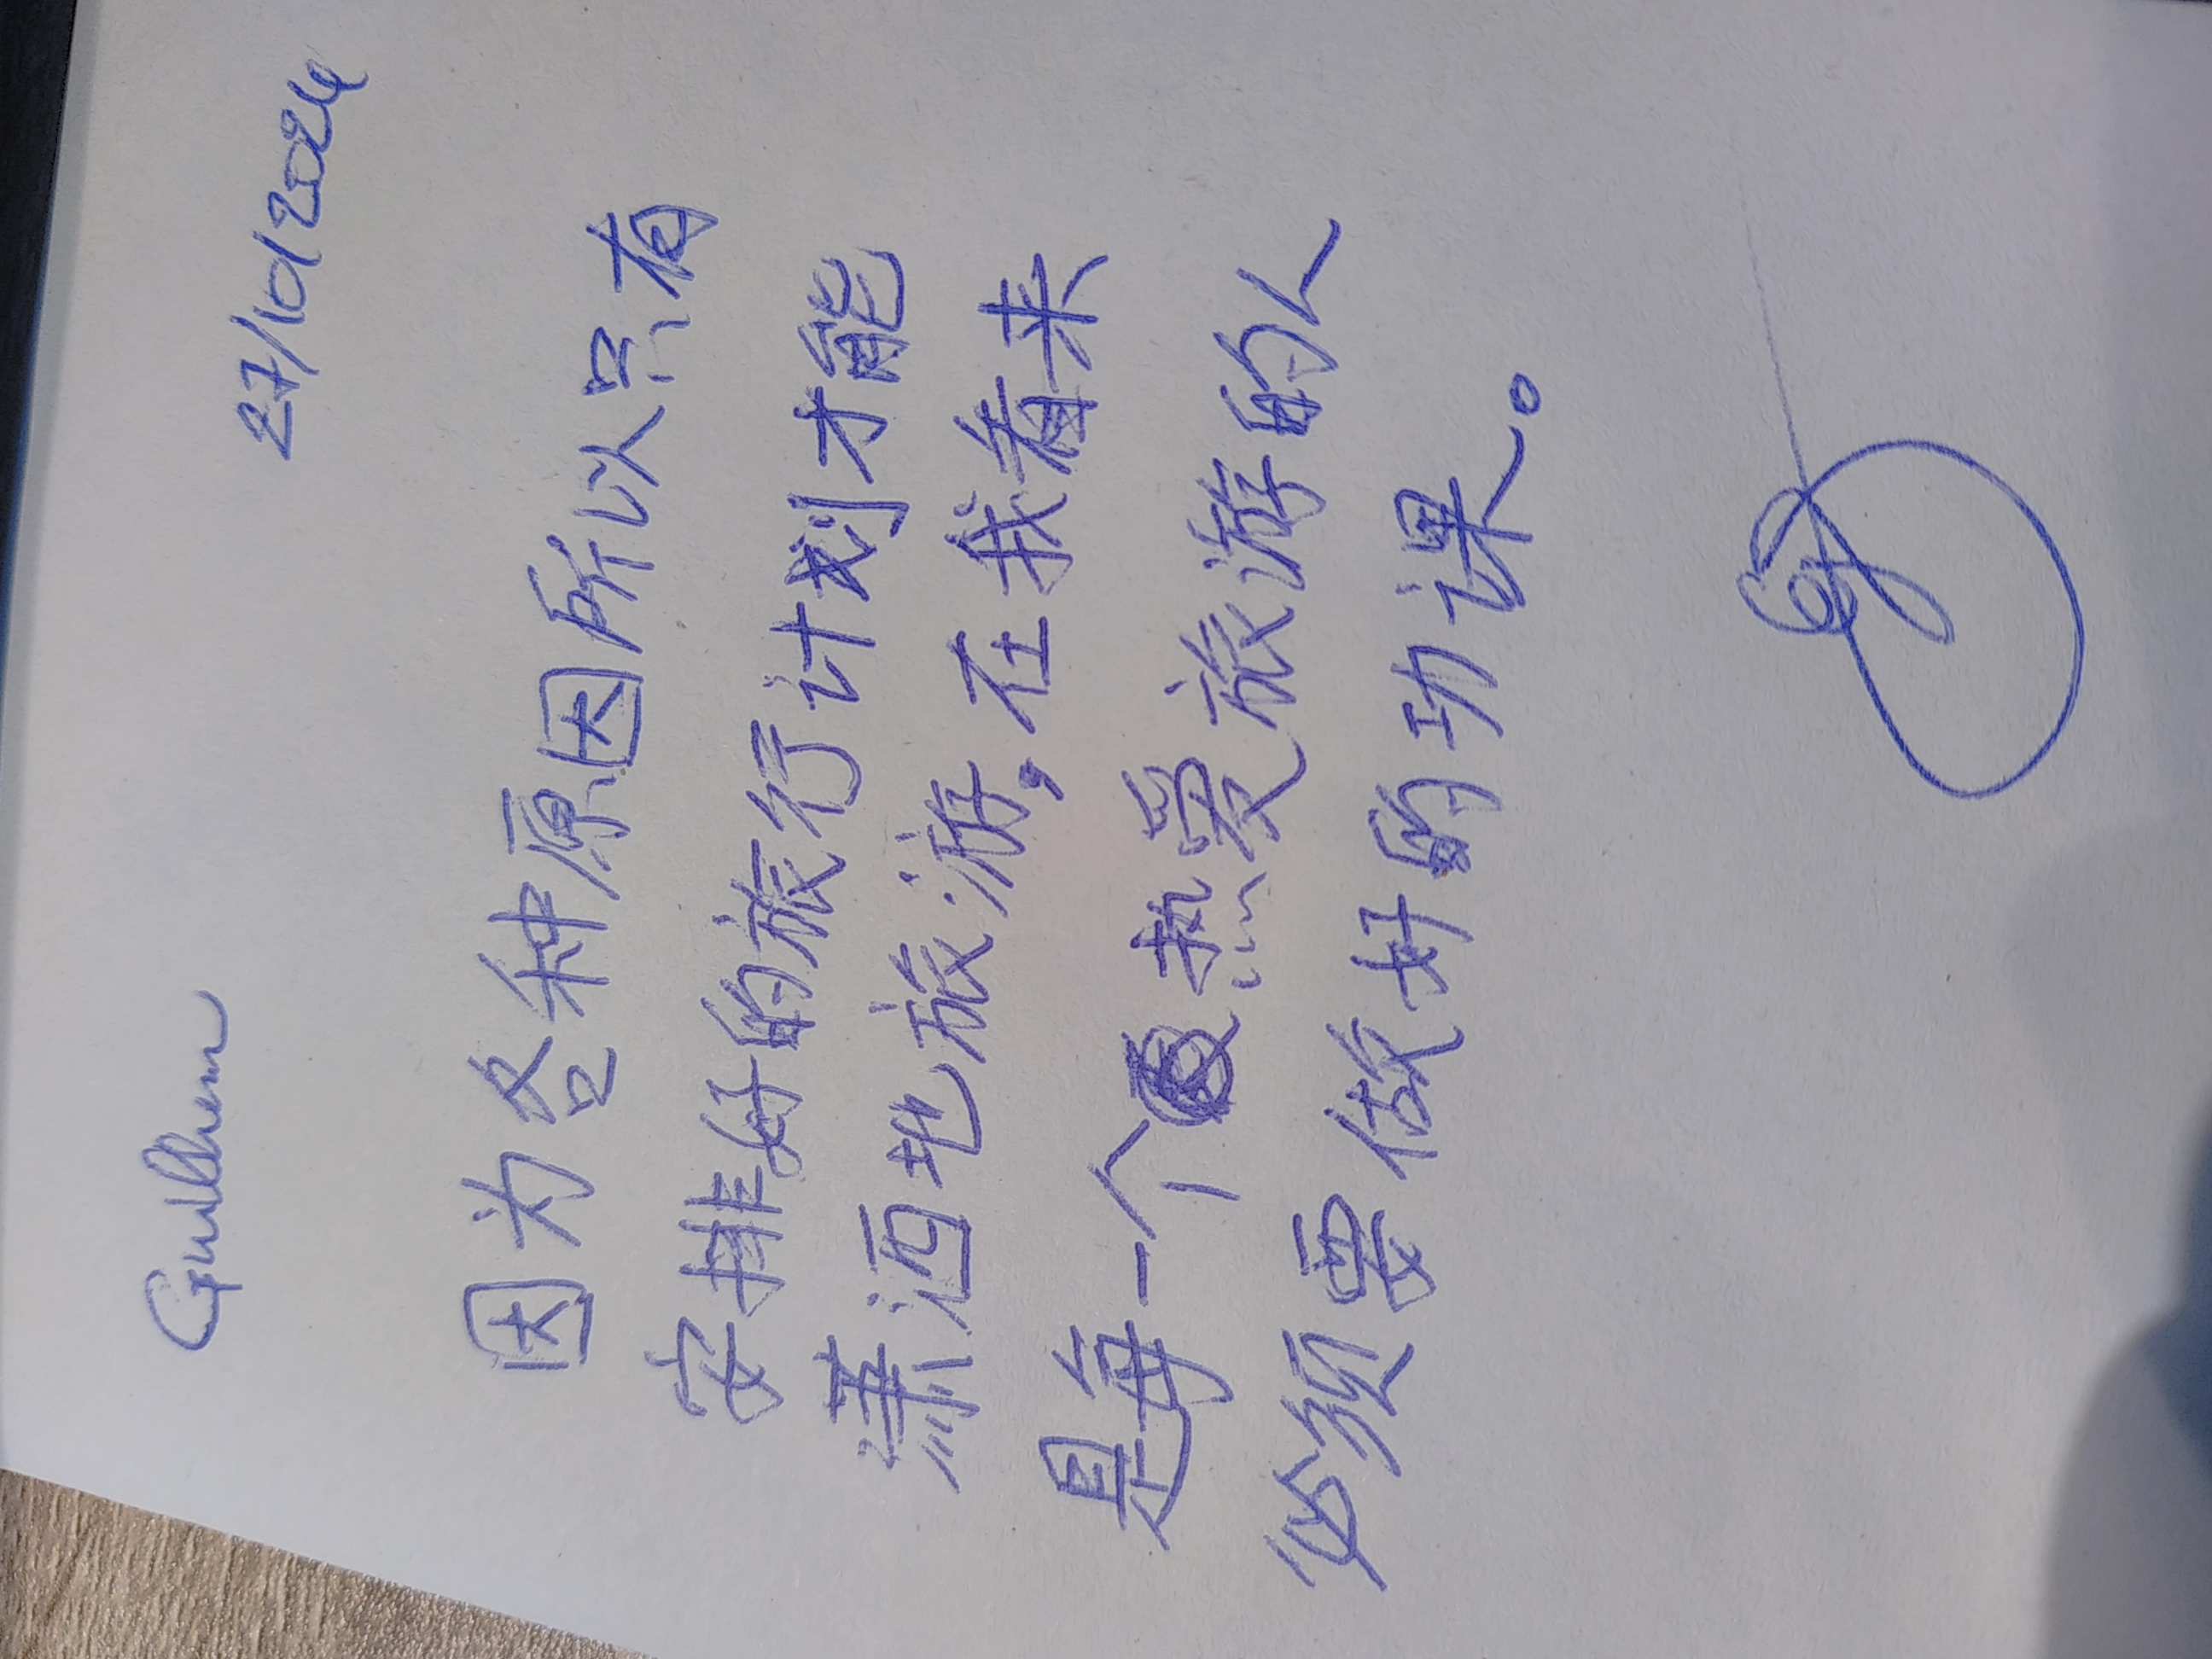 Guilhem
27/10/2024
因为各种原因所以只有
安排好的旅行计划才能
潇洒地旅游,在我看来
是每一个热爱旅游的人
必须要做好的功课。